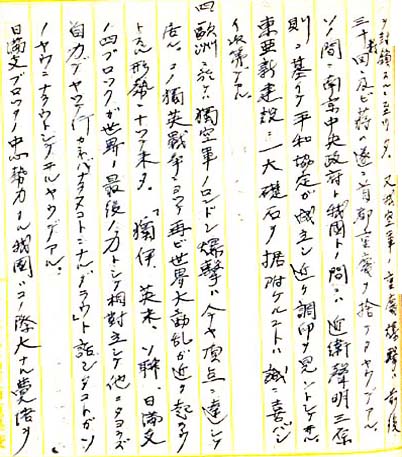 ヲ封鎖スルニ至リタ。又我空軍ノ重慶爆撃ハ前後
三十数回ニ及ビ蒋ハ遂ニ首都重慶ヲ捨テタヤウデアル
ソノ間ニ南京中央政府ト我國トノ間ニハ近衛聲明三原
則ニ基イテ平和協定ガ成立シ近ク調印ヲ見ントシテヰル
東亜新建設ニ一大礎石ヲ据附ケルコトハ誠ニ喜バシ
イ次第デアル
四 歐洲ニ於テハ獨空軍ノロンドン爆撃ハ今ヤ頂点ニ達シテ
居ル。コノ獨英戦争ニヨツテ再ビ世界大動乱ガ近ク起ラウ
トスル形勢トナツテ来タ。「獨伊、英米、ソ聯、日満支
ノ四ブロックガ世界ノ最後ノ力トシテ相對立シテ他ニタヨラズ
自力デヤツテ行カネバナラヌコトニナルダラウ」ト話シタコトガソ
ノヤウニナラウトシテヰルヤウデアル。
日満支ブロックノ中心勢力タル我國ハコノ際大ナル覺悟ヲ